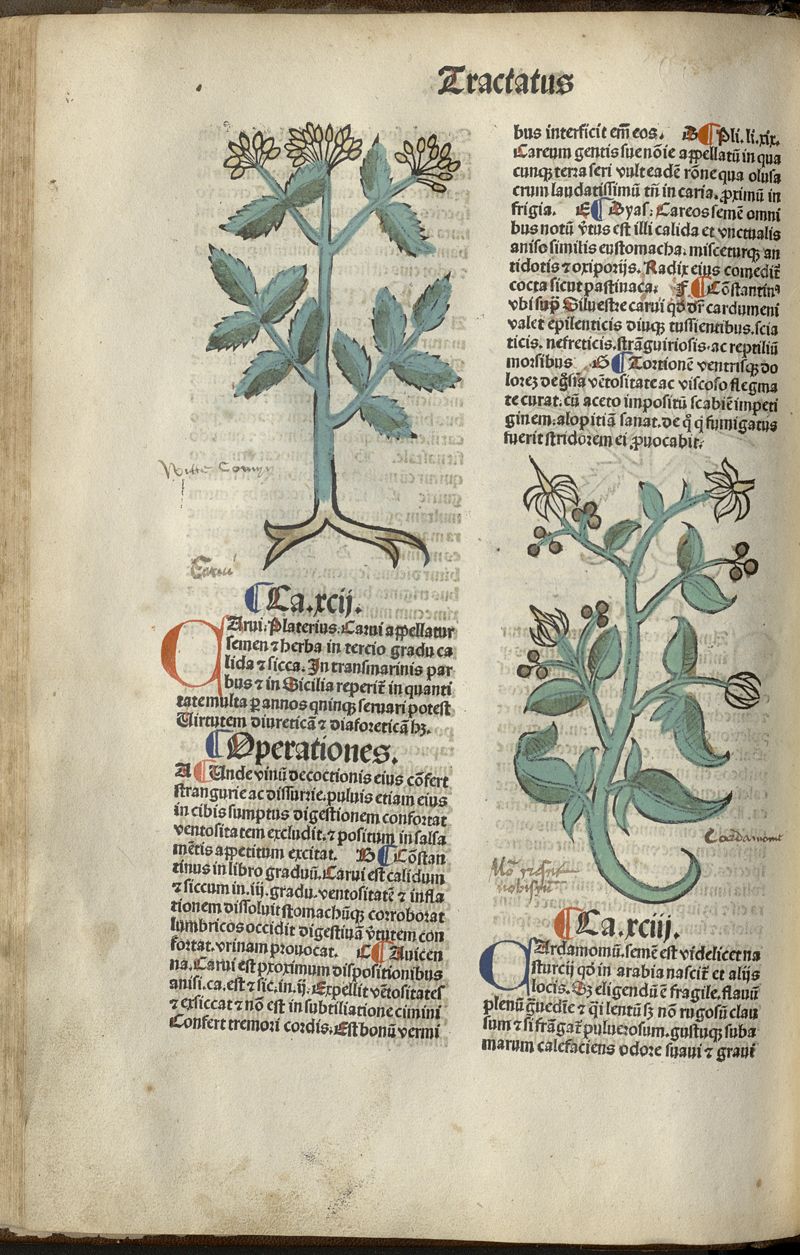 Tractatus
Carui
¶Ca.xcij.
CArui. Platerius. Carui appellatur
semen ⁊ herba in tercio gradu ca
lida ⁊ sicca. In transmarinis par
bus ⁊ in Sicilia reperit᷑ in quanti
tate multa ꝑ annos quinqꝫ seruari potest
Uirtutem diureticā ⁊ diaforeticā hꝫ.
¶Operationes.
A ¶Unde vinū decoctionis eius cōfert
strangurie ac dissurrie. puluis etiam eius
in cibis sumptus digestionem confortat
ventositatem excludit. ⁊ positum in salsa
mētis appetitum excitat. B ¶Cōstan
tinus in libro graduū. Carui est calidum
⁊ siccum in .iij. gradu. ventositatē ⁊ infla
tionem dissoluit stomachūqꝫ corroborat
lumbricos occidit digestiuā v̓tutem con
fortat. vrinam prouocat. C ¶Auicen
na. Carui est proximum dispositionibus
anisi. ca. est ⁊ sic. in .ij. Expellit vētositates
⁊ exsiccat ⁊ nō est in subtiliatione cimini
Confert tremori cordis. Est bonū vermi
bus interficit em̄ eos. D ¶Pli. li. xix.
Careum gentis sue nōie appellatū in qua
cunqꝫ terra seri vult eadē rōne qua olusa
crum laudatissimū tn̄ in caria. ꝓximū in
frigia. E ¶Dyas. Careos semē omni
bus notū v̓tus est illi calida et vnctualis
aniso similis eustomacha. misceturqꝫ an
tidotis ⁊ oxiporijs. Radix eius comedit᷑
cocta sicut pastinaca. F ¶Cōstantinꝰ
vbi sup̄ Siluestre carui qd̄ dr̄ cardumeni
valet epilenticis diuqꝫ tussientibus. scia
ticis. nefreticis. strāguiriosis. ac reptiliū
morsibus G ¶Tortionē ventrisqꝫ do
lorez de gͣssa vētositate ac viscoso flegma
te curat. cū aceto impositū scabiē impeti
ginem. alopitiā sanat. de qͦ qͥ fumigatus
fuerit stridorem ei ꝓuocabit.
Cardamomū
¶Ca.xciij.
CArdamomū. semē est videlicet na
sturcij qd̄ in arabia nascit᷑ et alijs
locis. Sꝫ eligendū ē fragile. flauū
plenū gͣuedīe ⁊ qͥ lentū sꝫ nō rugosū clau
sum ⁊ si frāgat᷑ puluerosum. gustuqꝫ suba
marum calefaciens odore suaui ⁊ graui